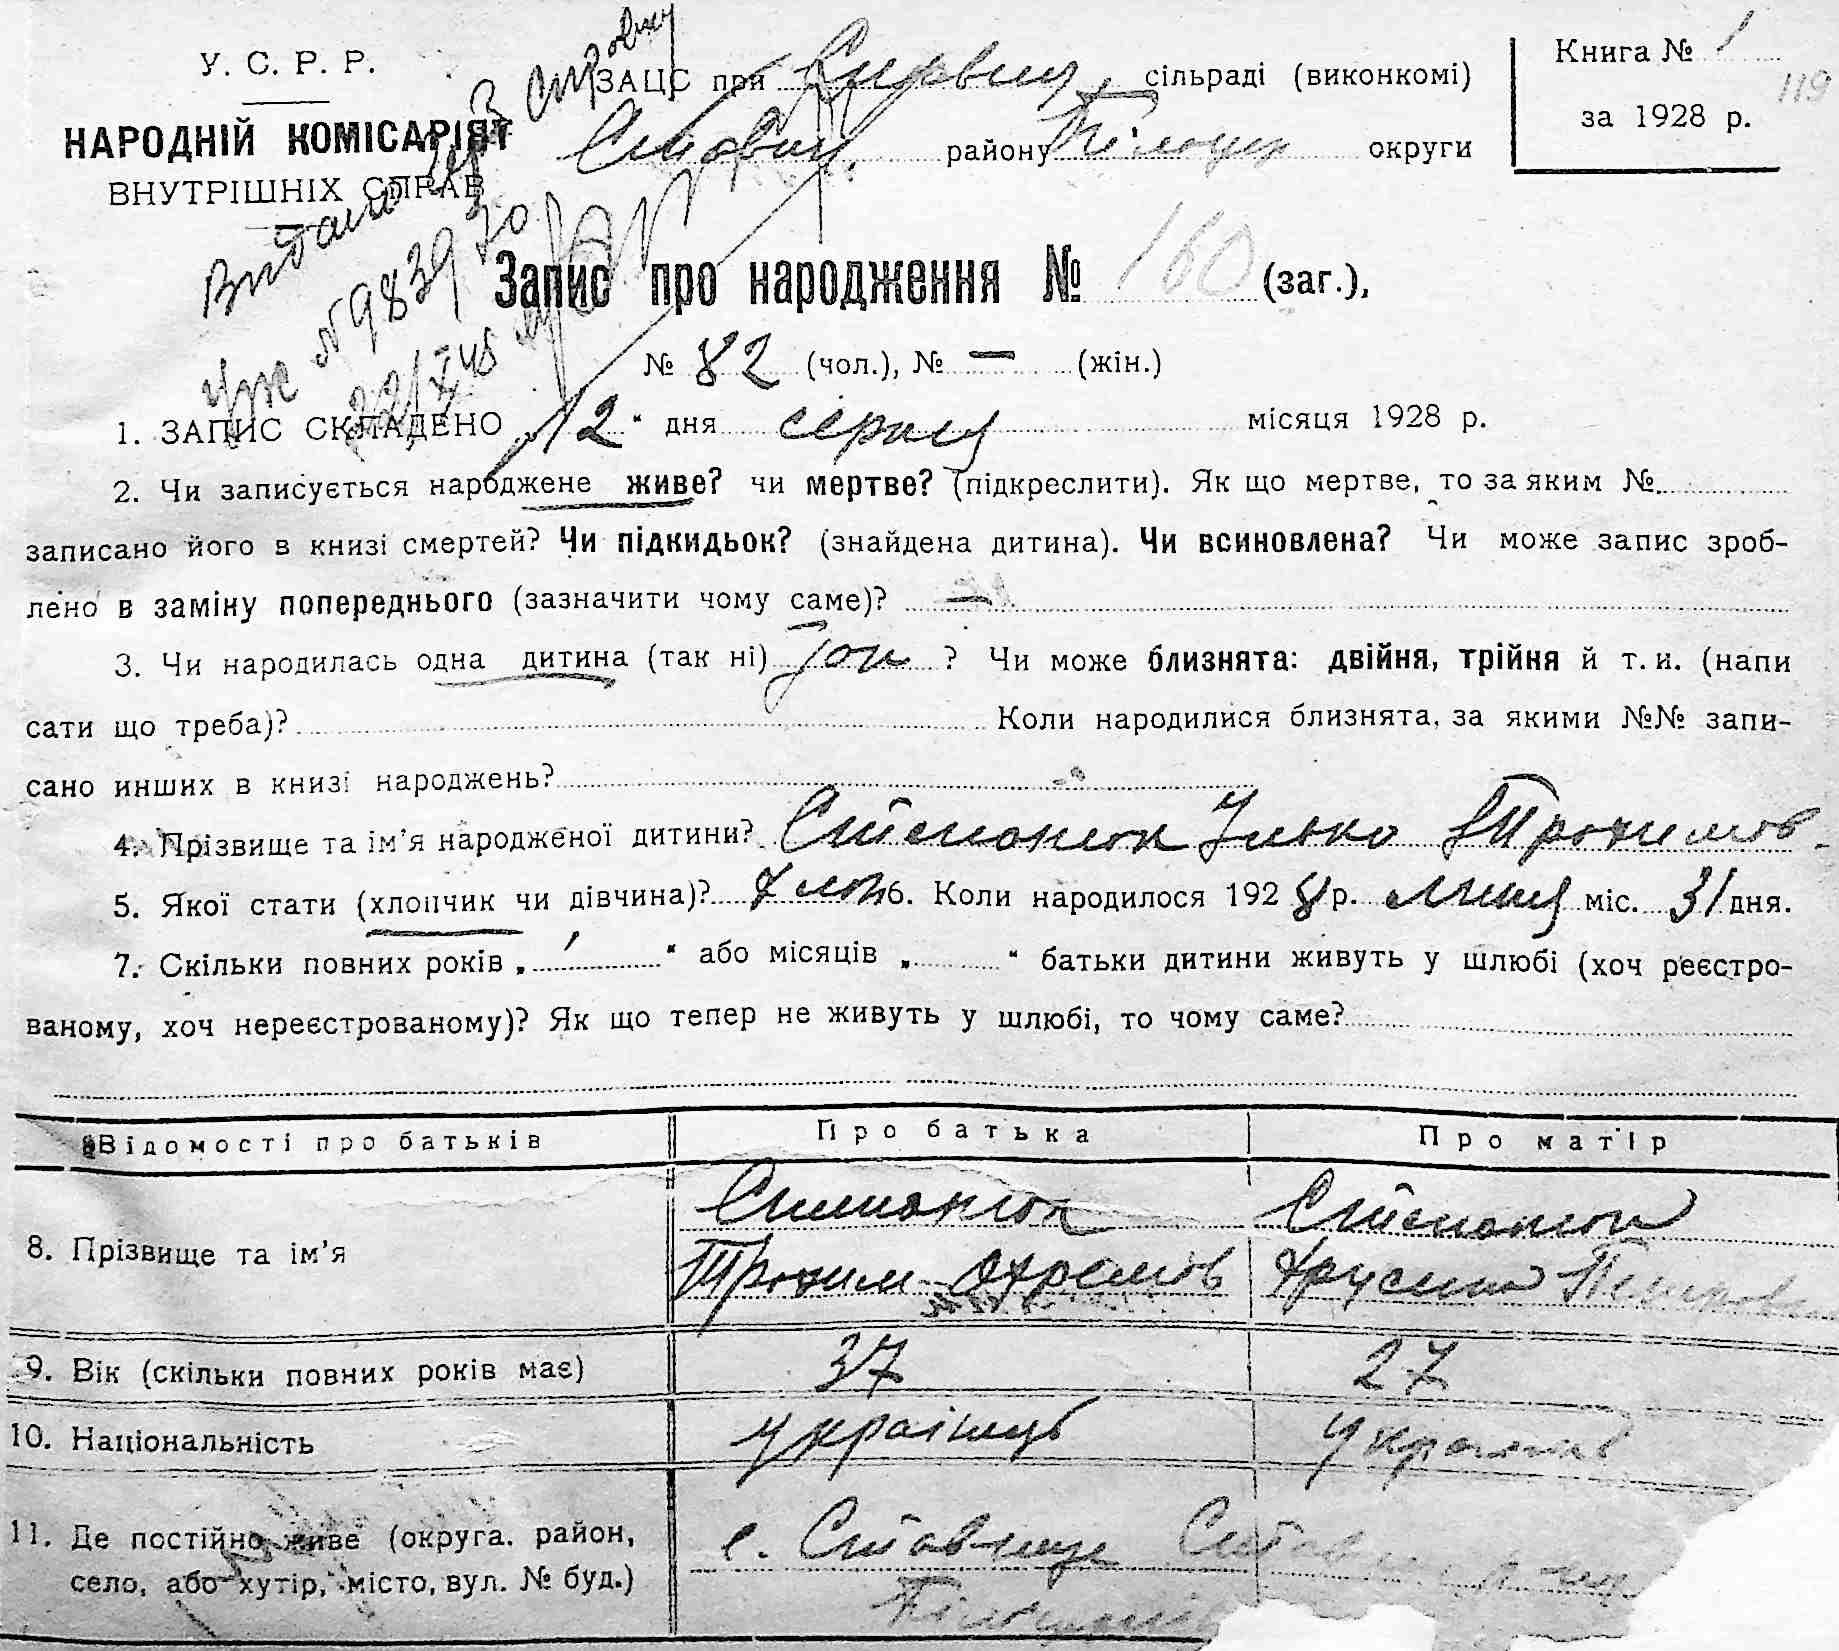 У. С. Р. Р.
НАРОДНІЙ КОМІСАРІЯТ
ВНУТРІШНІХ СПРАВ
ЗАЦС при сільраді (виконкомі)
району округи
Книга № 1
за 1928 р.
119
Видано
№ 9839
Запис про народження № 160 (заг.),
№ 82 (чол.), № — (жін.)
1. ЗАПИС СКЛАДЕНО „12“ дня серпня місяця 1928 р.
2. Чи записується народжене живе? чи мертве? (підкреслити). Як що мертве, то за яким №
записано його в книзі смертей? Чи підкидьок? (знайдена дитина). Чи всиновлена? Чи може запис зроб-
лено в заміну попереднього (зазначити чому саме)? —
3. Чи народилась одна дитина (так ні) так ? Чи може близнята: двійня, трійня й т. и. (напи
сати що треба)? Коли народилися близнята, за якими №№ запи-
сано инших в книзі народжень?
4. Прізвище та ім’я народженої дитини? Степанюк Ілько Трохимов.
5. Якої стати (хлопчик чи дівчина)? 6. Коли народилося 1928 р. липня міс. 31 дня.
7. Скільки повних років „ “ або місяців „ “ батьки дитини живуть у шлюбі (хоч реєстро-
ваному, хоч нереєстрованому)? Як що тепер не живуть у шлюбі, то чому саме?
Відомості про батьків Про батька Про матір
8. Прізвище та ім’я
Степанюк Степанюк
Трохим Охремов
9. Вік (скільки повних років має) 37 27
10. Національність українець
11. Де постійно живе (округа. район,
село, або хутір, місто, вул. № буд.)
с. Ставище